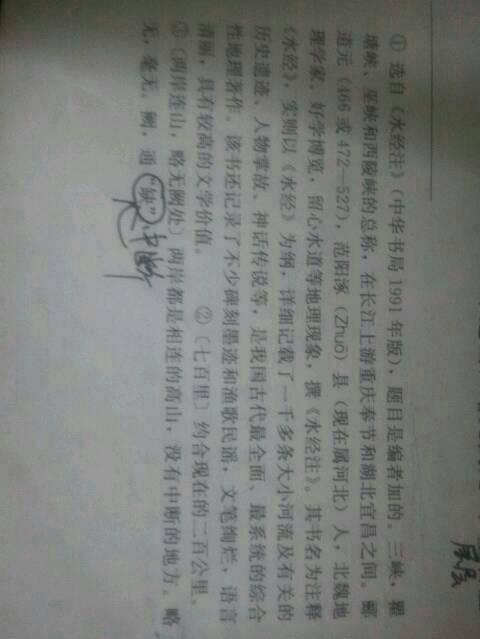 ① 选自《水经注》(中华书局 1991 年版),题目是编者加的。三峡,瞿
塘峡、巫峡和西陵峡的总称,在长江上游重庆奉节和湖北宜昌之间。郦
道元(466 或 472—527),范阳涿(Zhuō)县(现在属河北)人,北魏地
理学家。好学博览,留心水道等地理现象,撰《水经注》。其书名为注释
《水经》,实则以《水经》为纲,详细记载了一千多条大小河流及有关的
历史遗迹、人物掌故、神话传说等,是我国古代最全面、最系统的综合
性地理著作。该书还记录了不少碑刻墨迹和渔歌民谣,文笔绚烂,语言
清丽,具有较高的文学价值。 ②〔七百里〕约合现在的二百公里。
③〔两岸连山,略无阙处〕两岸都是相连的高山,没有中断的地方。略
无,毫无。阙,通“缺”,中断